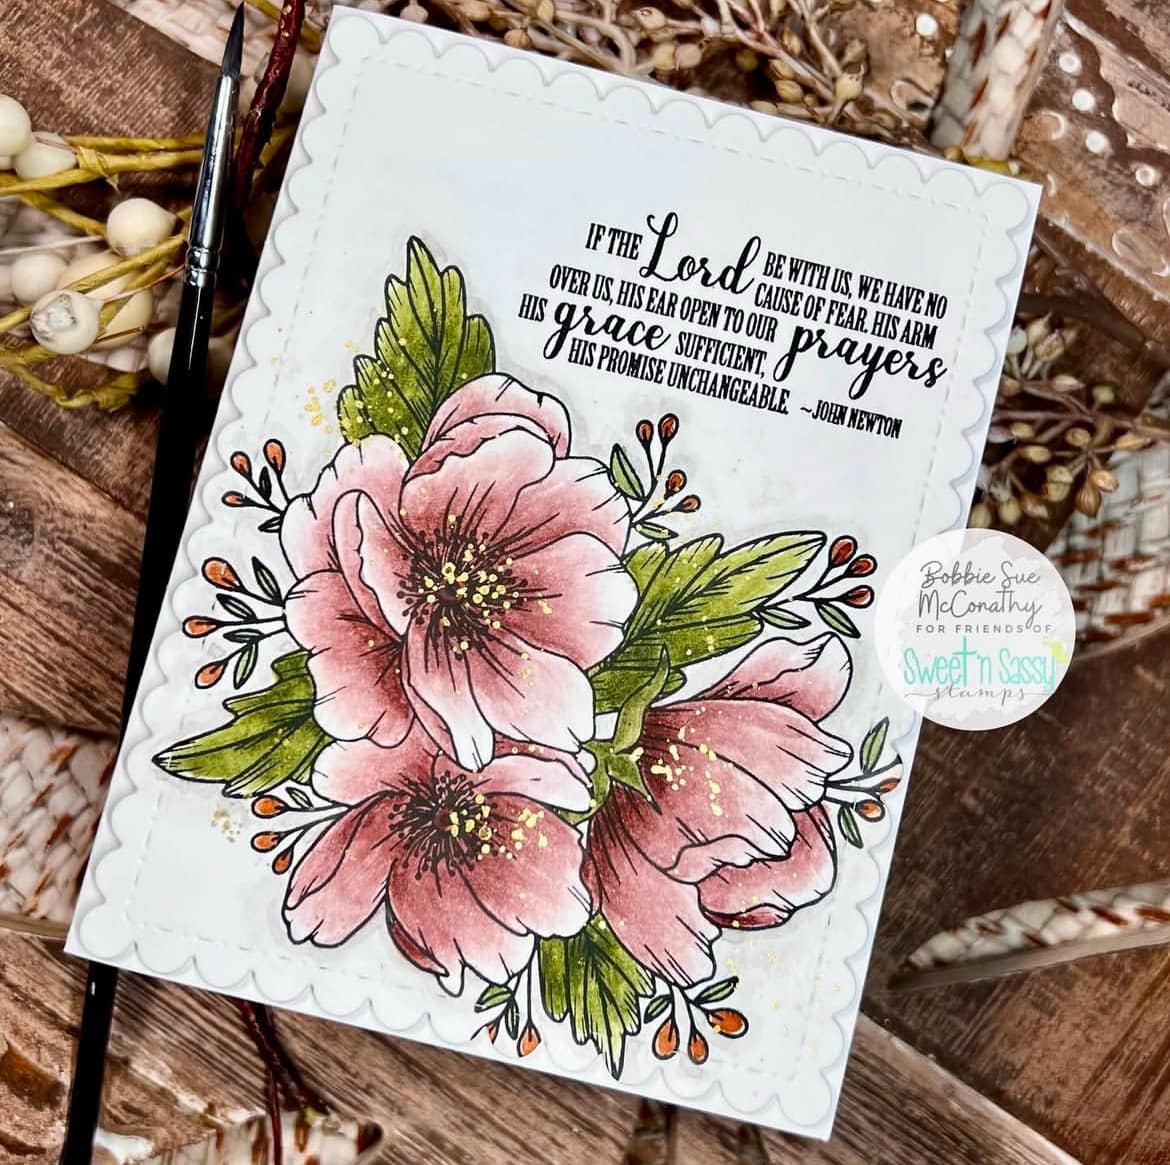 IF THE Lord BE WITH US, WE HAVE NO
CAUSE OF FEAR. HIS ARM
OVER US, HIS EAR OPEN TO OUR prayers
HIS grace SUFFICIENT,
HIS PROMISE UNCHANGEABLE. ~JOHN NEWTON
Bobbie Sue
McConathy
FOR FRIENDS OF
Sweet 'n Sassy
stamps